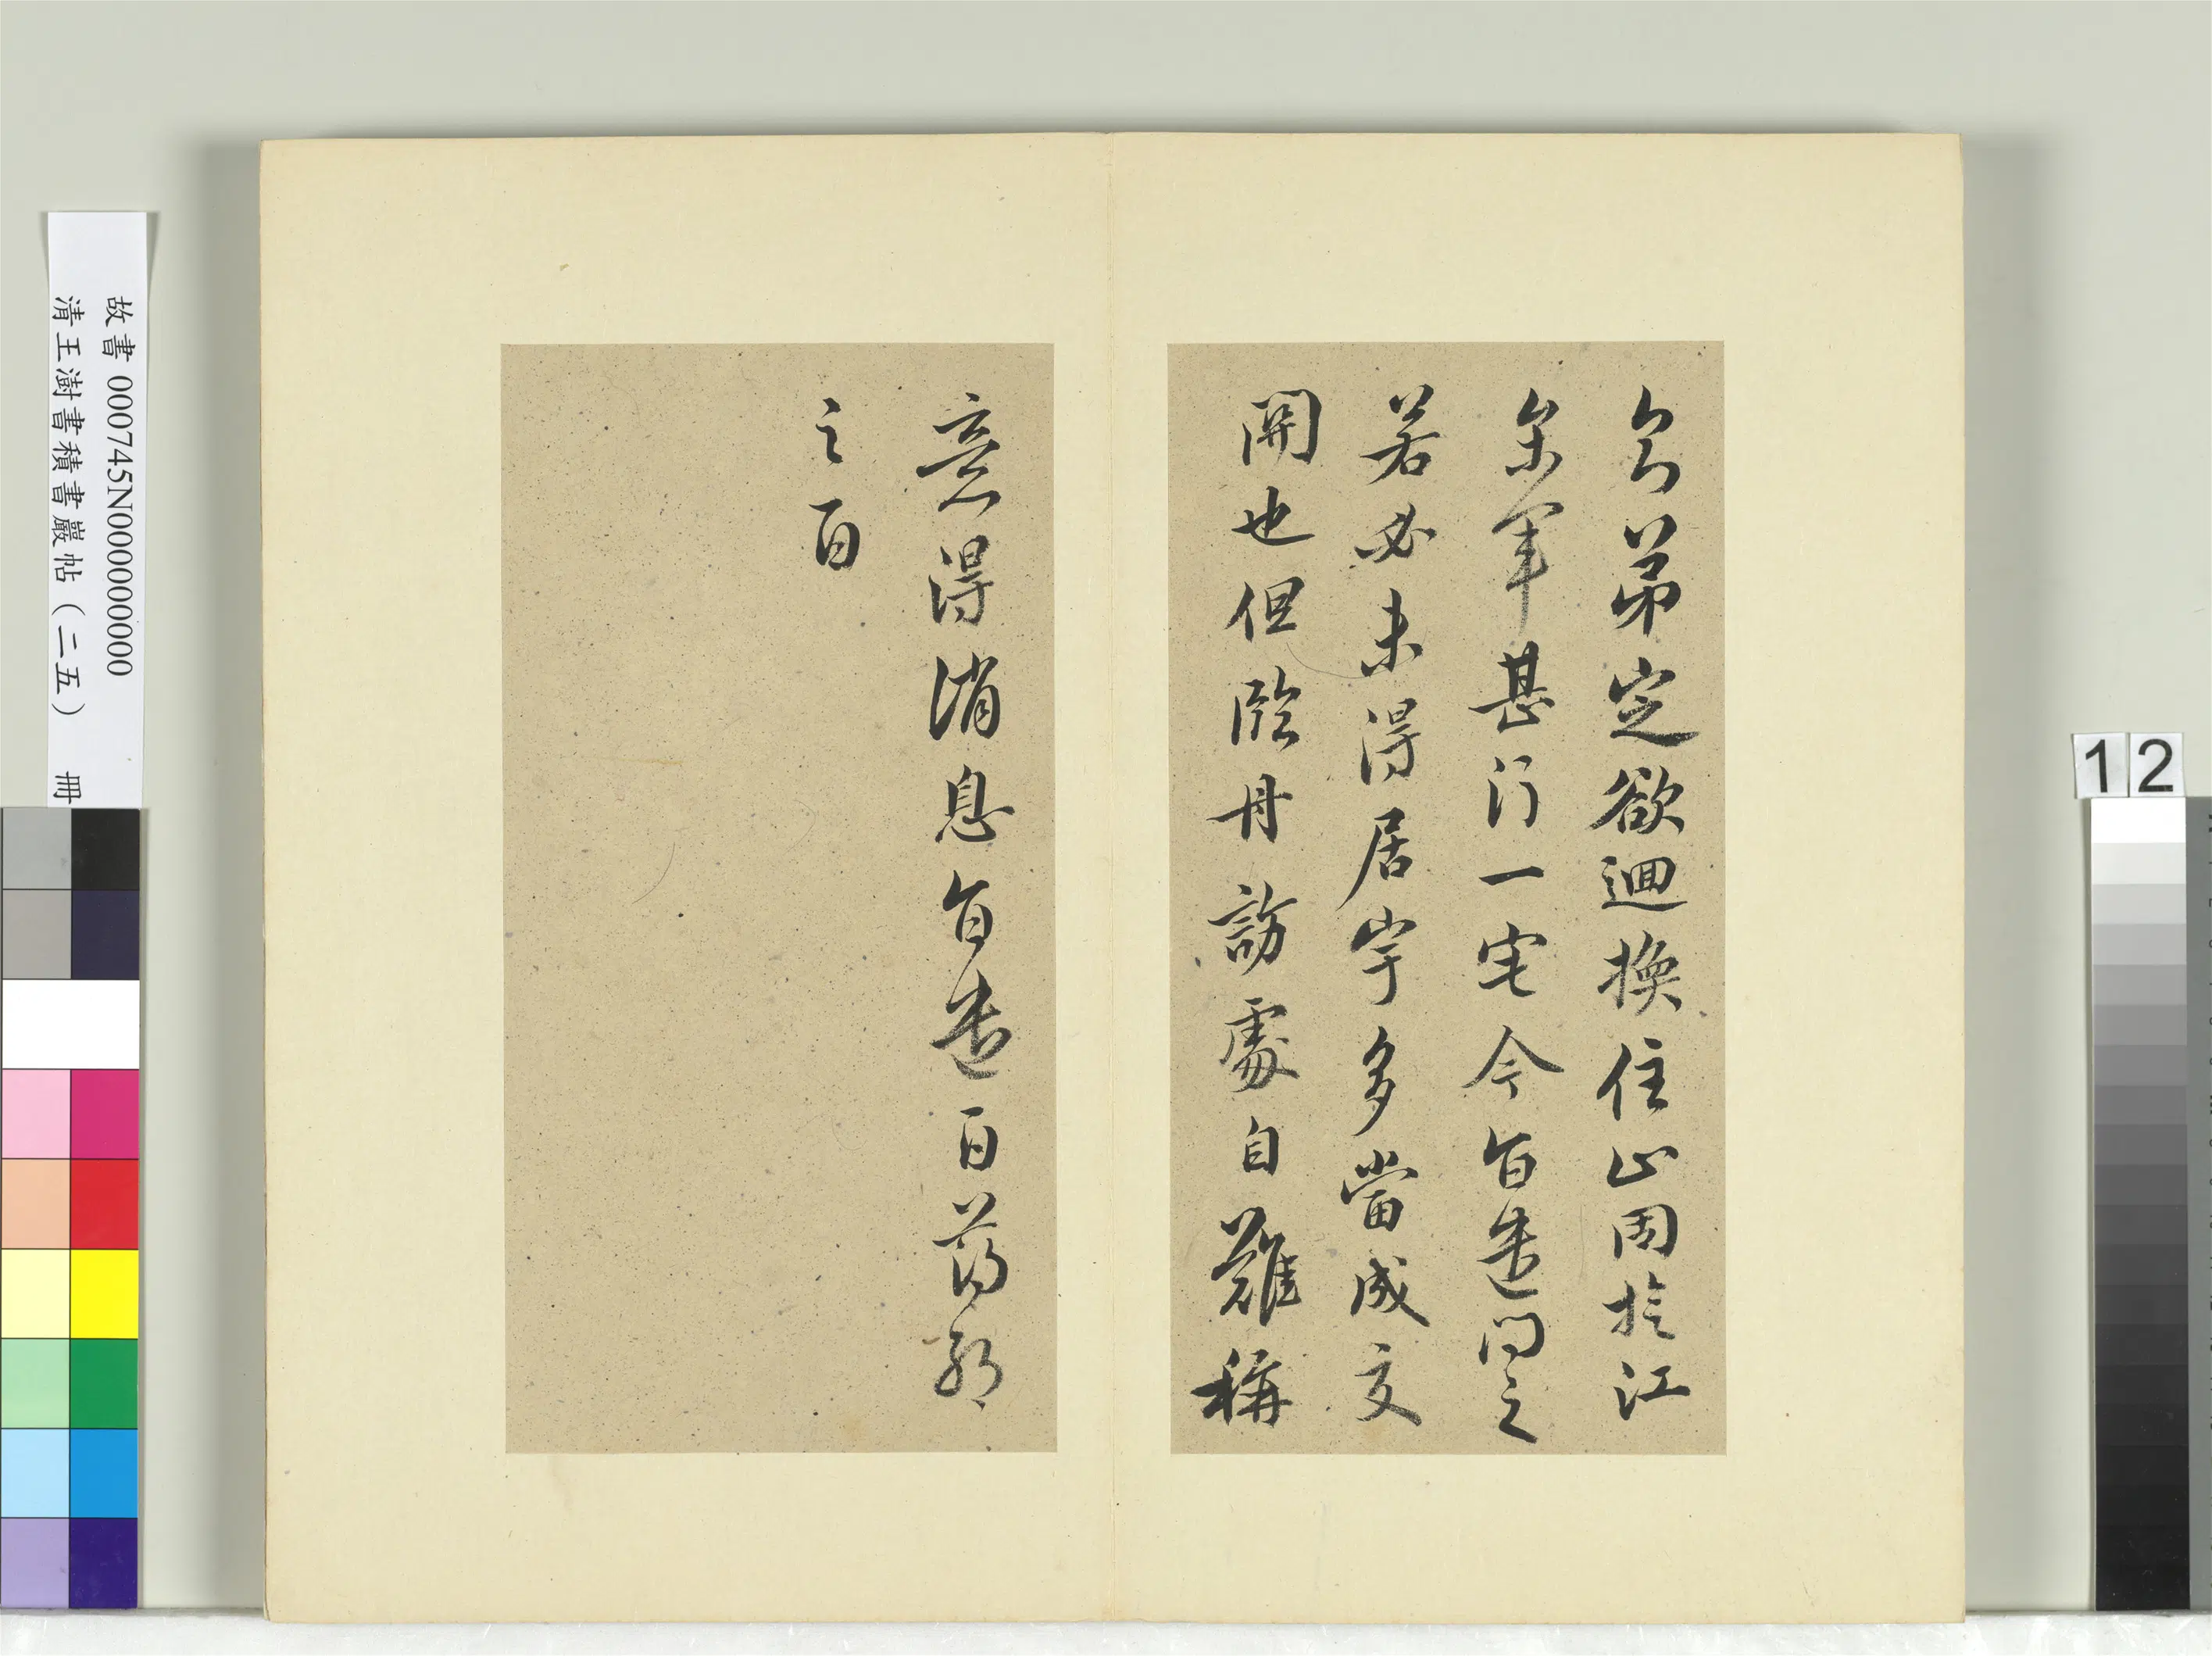 弟定欲迴換住山周於江
軍甚行一宅今百遣問之
若必未得居宇多當成交
開也但臨舟訪處自難稱
意得消息百遣百藥
之百
故書 000745N000000000
清王澍書積書巖帖（二五） 冊
12